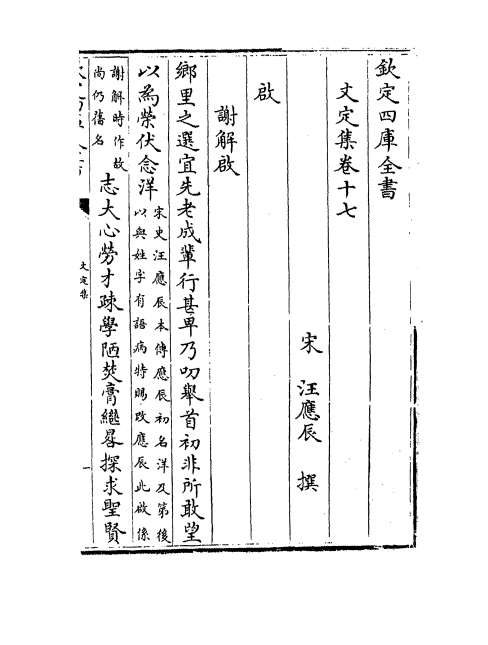 欽定四庫全書
文定集卷十七
宋 汪應辰 撰
啟
謝解啟
鄉里之選宜先老成輩行甚卑乃叨舉首初非所敢望
以為榮伏念洋宋史汪應辰本傳應辰初名洋及第後以與姓字有語病特賜改應辰此啟係
謝解時作故尚仍舊名志大心勞才疎學陋焚膏繼晷探求聖賢
文定集
一